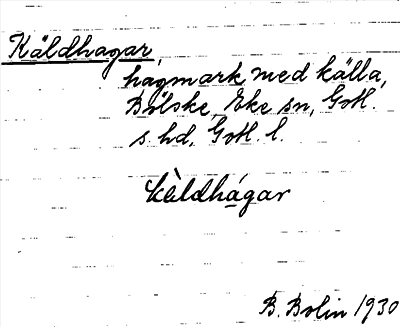 Käldhagar,
hagmark med källa,
Bölske, Eke sn, Gotl.
s. hd, Gotl. l.
kä̀ldhágar
B. Bolin 1930